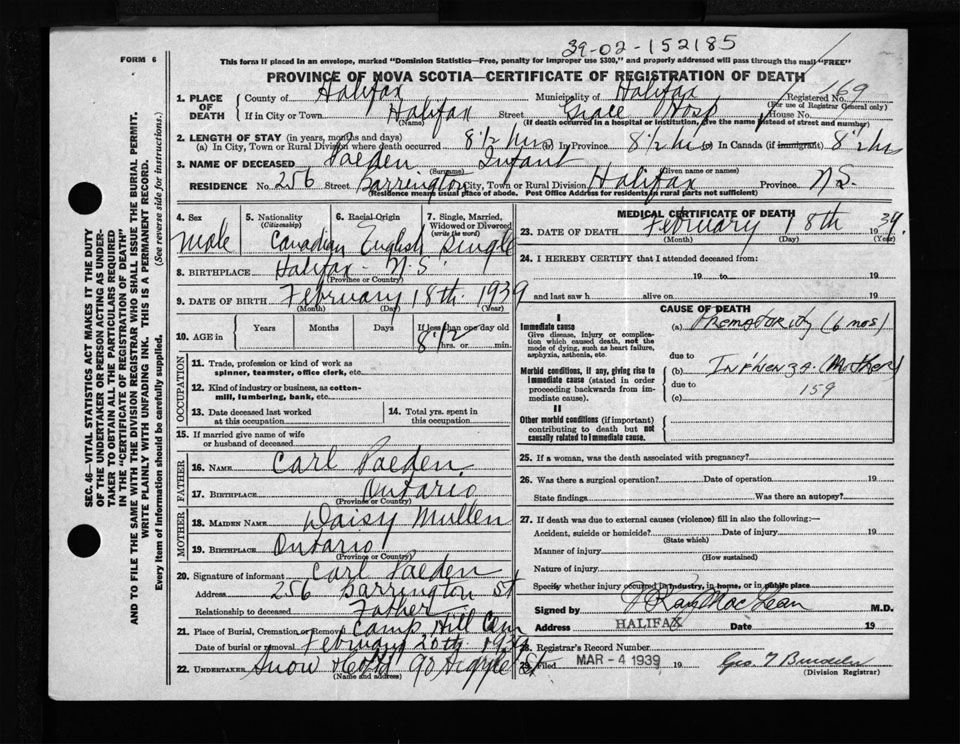 39-02-152185
FORM 6
This form if placed in an envelope, marked "Dominion Statistics—Free, penalty for improper use $300," and properly addressed will pass through the mail "FREE"
PROVINCE OF NOVA SCOTIA—CERTIFICATE OF REGISTRATION OF DEATH
1. PLACE OF DEATH
County of Halifax Municipality of Halifax Registered No. 169
(For use of Registrar General only)
If in City or Town Halifax Street Grace Hosp House No.
(Name) (If death occurred in a hospital or institution, give the name instead of street and number)
2. LENGTH OF STAY (in years, months and days)
(a) In City, Town or Rural Division where death occurred 8 1/2 hrs (b) In Province 8 1/2 hrs (c) In Canada (if immigrant) 8 1/2 hrs
3. NAME OF DECEASED Infant
(Surname) (Given name or names)
RESIDENCE No. 256 Street Barrington City, Town or Rural Division Halifax Province N.S.
(Residence means usual place of abode. Post Office Address for residents in rural parts not sufficient)
4. Sex
Male
5. Nationality
(Citizenship)
Canadian
6. Racial Origin
English
7. Single, Married, Widowed or Divorced
(write the word)
Single
8. BIRTHPLACE Halifax - N.S.
(Province or Country)
9. DATE OF BIRTH February 18th 1939
(Month) (Day) (Year)
10. AGE in
Years
Months
Days
If less than one day old
8 1/2 hrs. or min.
OCCUPATION
11. Trade, profession or kind of work as spinner, teamster, office clerk, etc.
12. Kind of industry or business, as cotton-mill, lumbering, bank, etc.
13. Date deceased last worked at this occupation
14. Total yrs. spent in this occupation
15. If married give name of wife or husband of deceased
FATHER
16. NAME Carl
17. BIRTHPLACE Ontario
(Province or Country)
MOTHER
18. MAIDEN NAME Daisy Mullen
19. BIRTHPLACE Ontario
(Province or Country)
20. Signature of informant Carl
Address 256 Barrington St
Relationship to deceased Father
21. Place of Burial, Cremation or Removal Camp Hill Cem
Date of burial or removal February 20th 1939
22. UNDERTAKER Snow 90 Argyle St
(Name and address)
MEDICAL CERTIFICATE OF DEATH
23. DATE OF DEATH February 18th 1939
(Month) (Day) (Year)
24. I HEREBY CERTIFY that I attended deceased from:
19 to 19
and last saw h alive on 19
CAUSE OF DEATH
I
Immediate cause
Give disease, injury or complication which caused death, not the mode of dying, such as heart failure, asphyxia, asthenia, etc.
(a) Prematurity (6 mos)
due to
Morbid conditions, if any, giving rise to immediate cause (stated in order proceeding backwards from immediate cause).
(b) Influenza (Mother)
due to
(c) 159
II
Other morbid conditions (if important) contributing to death but not causally related to immediate cause.
25. If a woman, was the death associated with pregnancy?
26. Was there a surgical operation? Date of operation 19
State findings Was there an autopsy?
27. If death was due to external causes (violence) fill in also the following:—
Accident, suicide or homicide? Date of injury 19
(State which)
Manner of injury
(How sustained)
Nature of injury
Specify whether injury occurred in industry, in home, or in public place
Signed by Ray MacLean M.D.
Address HALIFAX Date 19
28. Registrar's Record Number
29. Filed MAR - 4 1939 19
(Division Registrar)
SEC. 46—VITAL STATISTICS ACT MAKES IT THE DUTY
OF THE UNDERTAKER OR PERSON ACTING AS UNDER-
TAKER TO OBTAIN ALL THE PARTICULARS REQUIRED
IN THE "CERTIFICATE OF REGISTRATION OF DEATH"
AND TO FILE THE SAME WITH THE DIVISION REGISTRAR WHO SHALL ISSUE THE BURIAL PERMIT.
WRITE PLAINLY WITH UNFADING INK. THIS IS A PERMANENT RECORD.
Every item of information should be carefully supplied. (See reverse side for instructions.)